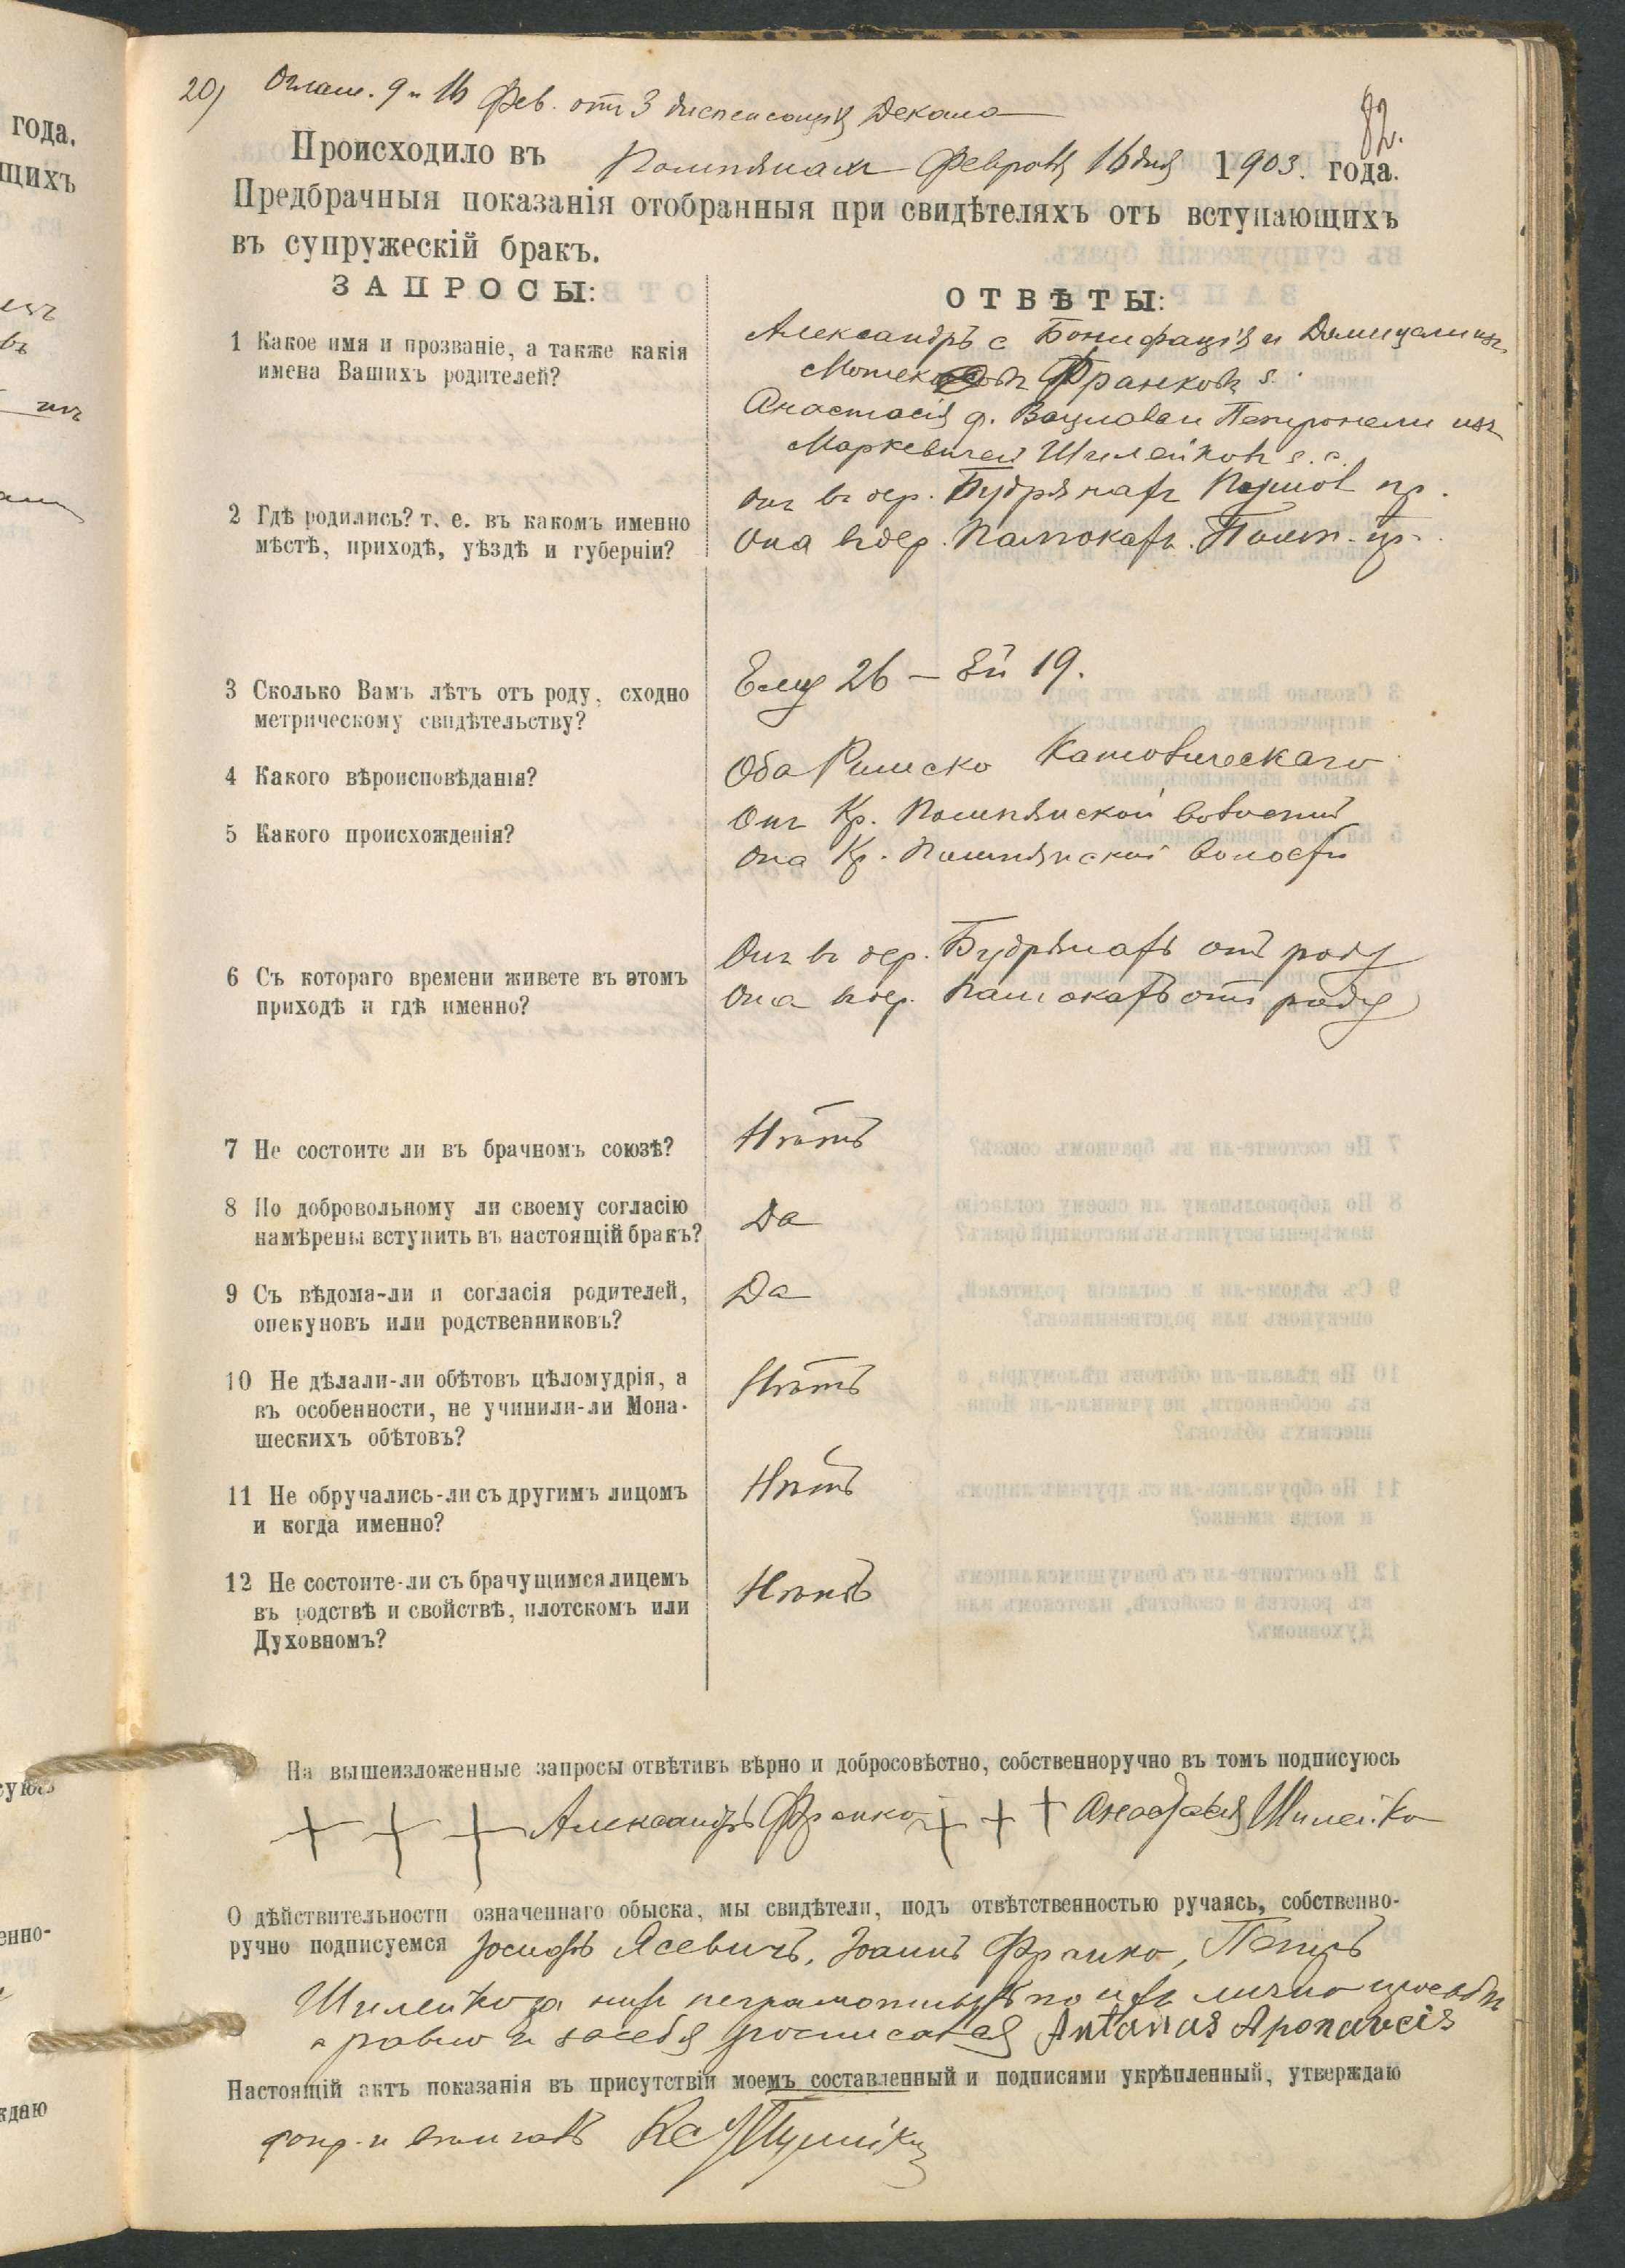 года.
щихъ
20) Оглаш. 9 и 16 Фев. от 3 диспенсація Декана
82.
Происходило въ Помпянах Февраля 16 дня 1903. года.
Предбрачныя показанія отобранныя при свидѣтеляхъ отъ вступающихъ
въ супружескій бракъ.
ЗАПРОСЫ:
ОТВѢТЫ:
1 Какое имя и прозваніе, а также какія
имена Вашихъ родителей?
Александръ с Бонифація и Домицели изъ
Франковъ s.
Анастасія д. Вацлава и Петронели изъ
Маркевичей Шилейковъ s. c.
2 Гдѣ родились? т. е. въ какомъ именно
мѣстѣ, приходѣ, уѣздѣ и губерніи?
Онъ въ дер. Будрянахъ пр.
Она въ дер. Помп. пр.
3 Сколько Вамъ лѣтъ отъ роду, сходно
метрическому свидѣтельству?
Ему 26 — Ей 19.
4 Какого вѣроисповѣданія?
Оба Римско Католическаго
5 Какого происхожденія?
Онъ Кр. Помпянской волости
Она Кр. Помпянской волости
6 Съ котораго времени живете въ этомъ
приходѣ и гдѣ именно?
Онъ въ дер. Будрянахъ отъ роду
Она въ дер. отъ роду
7 Не состоите ли въ брачномъ союзѣ?
Нѣтъ
8 По добровольному ли своему согласію
намѣрены вступить въ настоящій бракъ?
Да
9 Съ вѣдома-ли и согласія родителей,
опекуновъ или родственниковъ?
Да
10 Не дѣлали-ли обѣтовъ цѣломудрія, а
въ особенности, не учинили-ли Мона-
шескихъ обѣтовъ?
Нѣтъ
11 Не обручались-ли съ другимъ лицомъ
и когда именно?
Нѣтъ
12 Не состоите-ли съ брачущимся лицемъ
въ родствѣ и свойствѣ, плотскомъ или
Духовномъ?
Нѣтъ
На вышеизложенные запросы отвѣтивъ вѣрно и добросовѣстно, собственноручно въ томъ подписуюсь
+ + + Александръ Франко + + + Анастасія Шилейко
О дѣйствительности означеннаго обыска, мы свидѣтели, подъ отвѣтственностью ручаясь, собственно-
ручно подписуемся Іосифъ Ясевичъ, Іоаннъ Франко, Петръ
Шилейко за нихъ неграмотныхъ по ихъ личной просьбѣ
а равно и за себя росписался Antanas Aponavcis
Настоящій актъ показанія въ присутствіи моемъ составленный и подписями укрѣпленный, утверждаю
Кс
енно-
ждаю